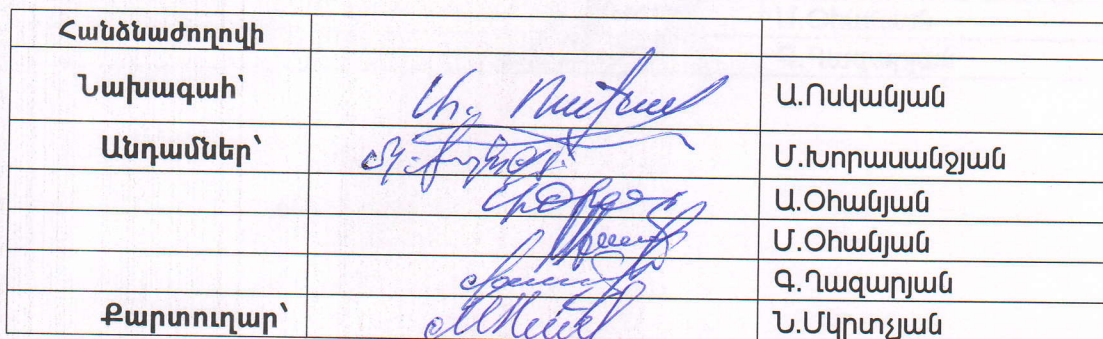 Հանձնաժողովի
Նախագահ՝ Ա.Ոսկանյան
Անդամներ՝ Մ.Խորասանջյան
Ա.Օհանյան
Մ.Օհանյան
Գ.Ղազարյան
Քարտուղար՝ Ն.Մկրտչյան